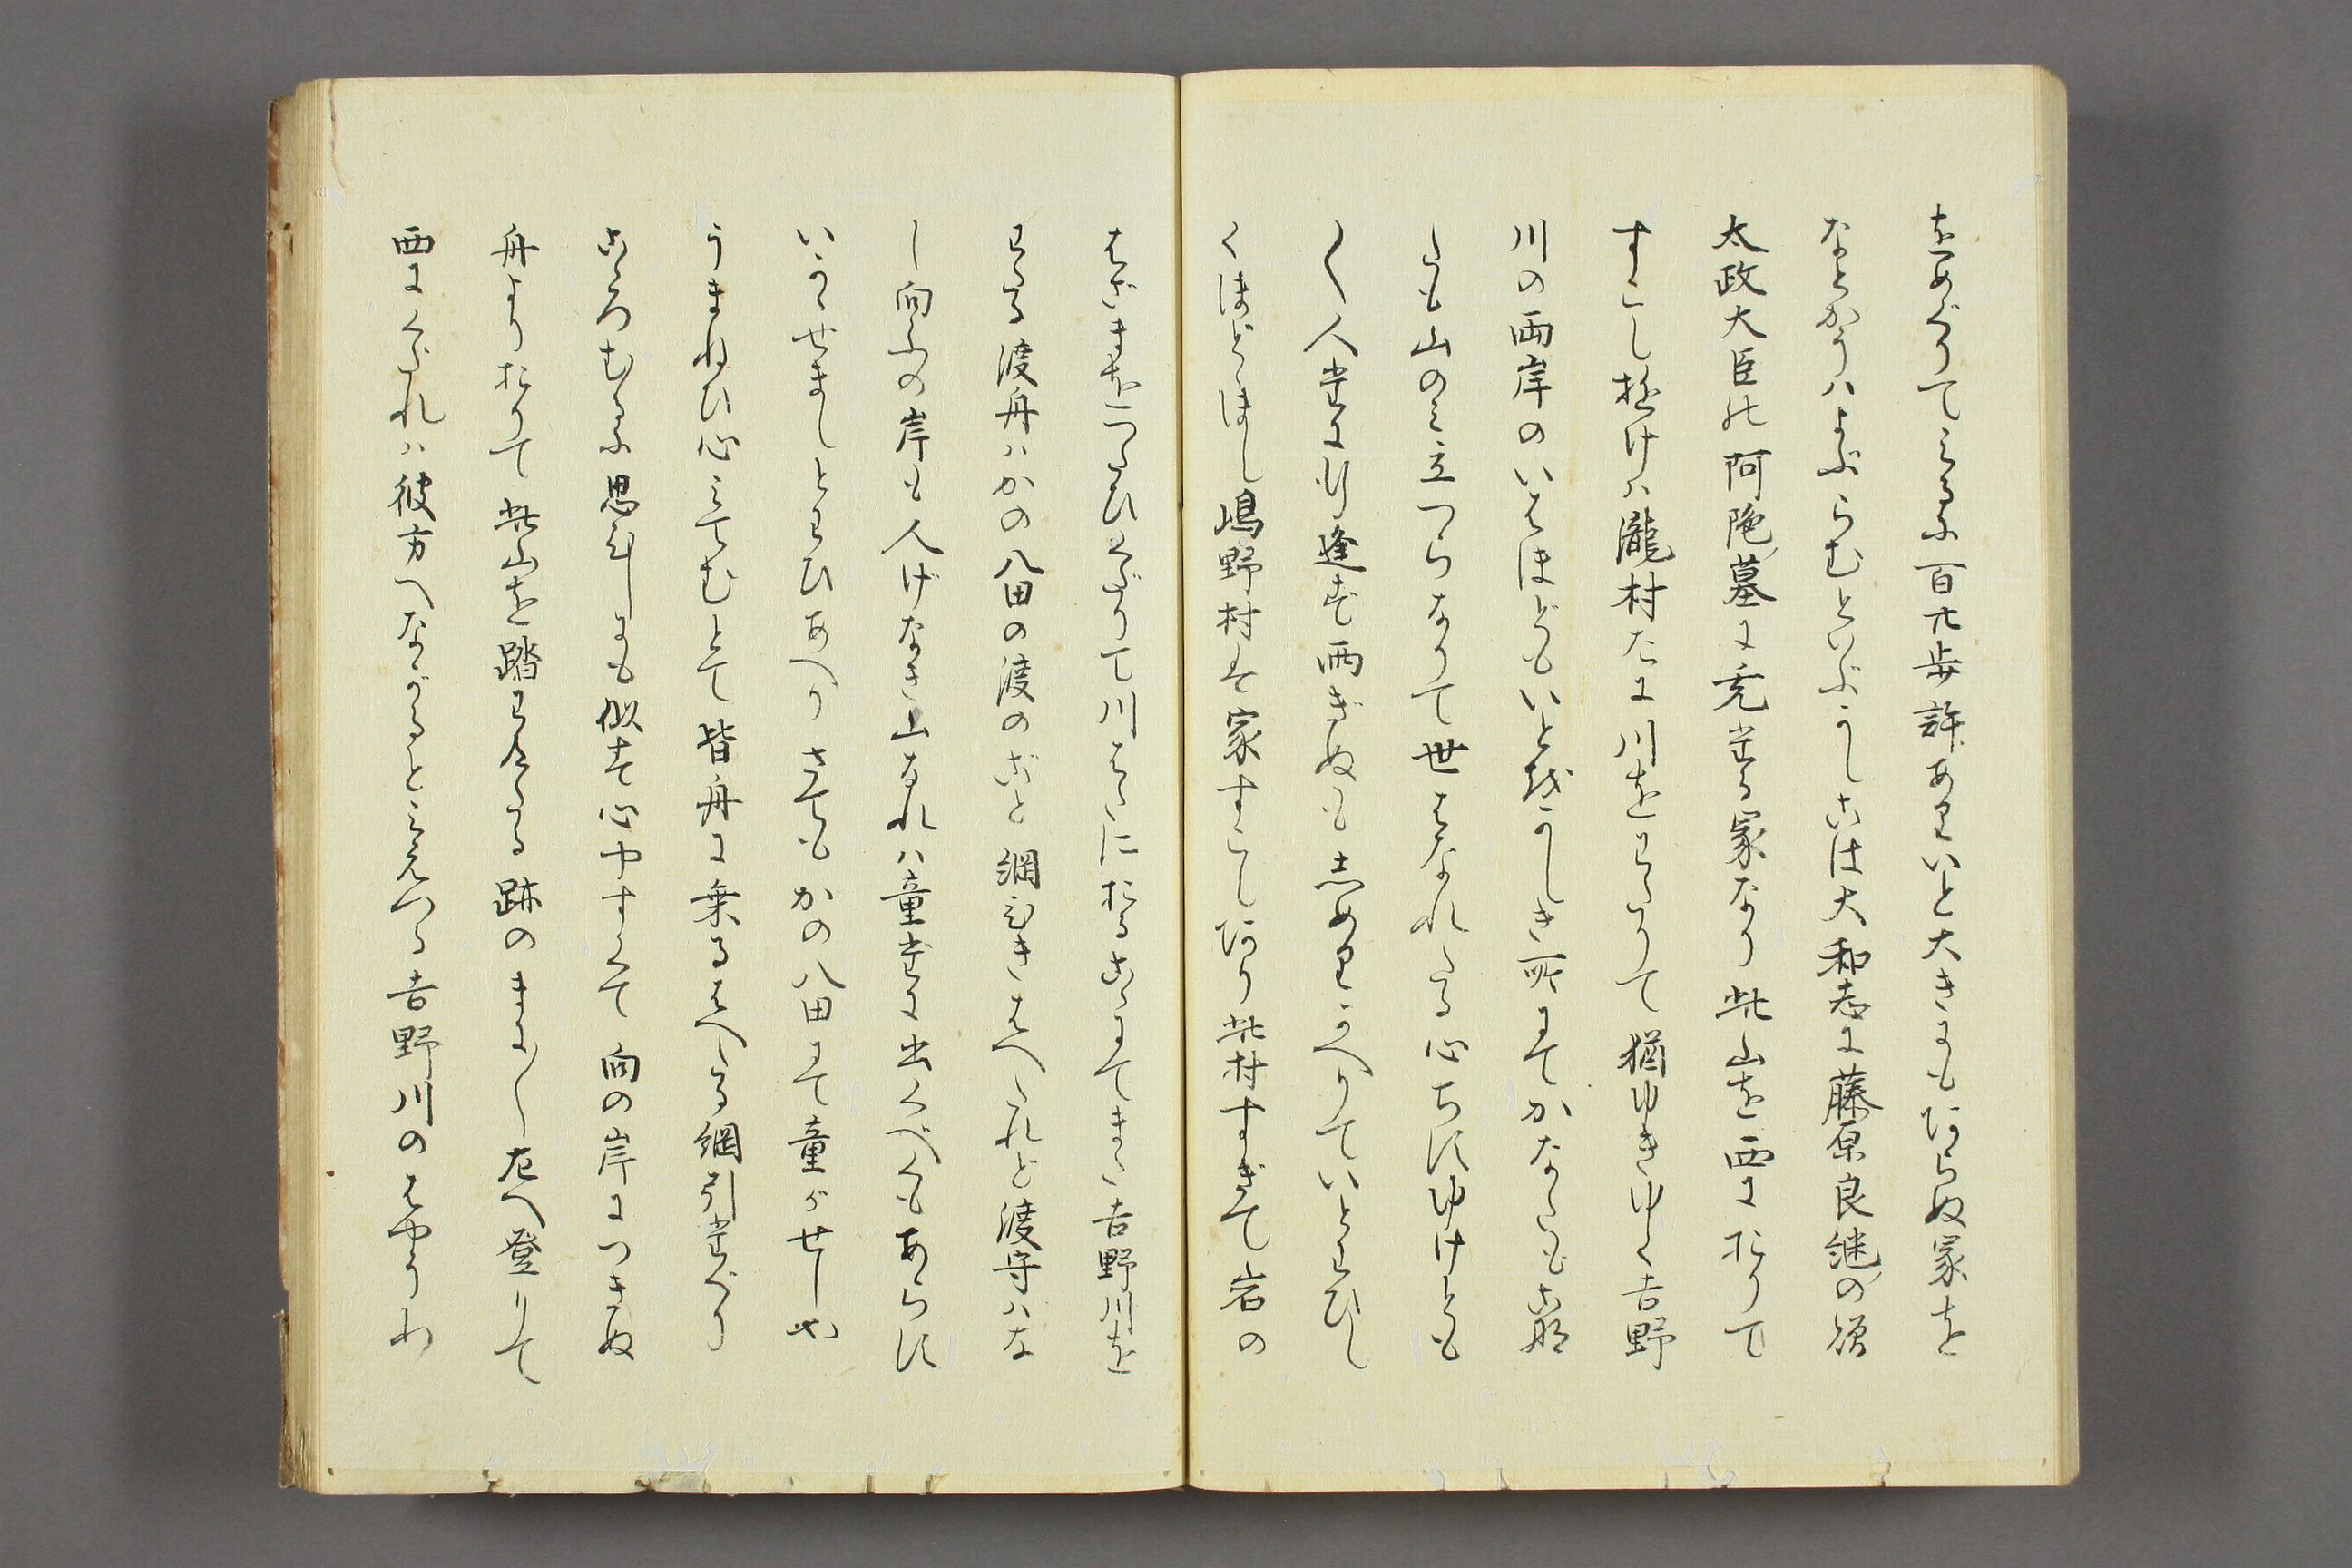 をめぐりてみるに百六歩許ありいと大きにもあらぬ冢を
なとかうハよぶらむといぶかしこは大和志に藤原良継の贈
太政大臣の阿陁墓に充たる冢なり此山を西におりて
すこし極けハ瀧村たに川をわたりて猶ゆきゆく吉野
川の両岸のいはほどもいとをかしき所にてかなたもこな
たも山のミ立つらなりて世はなれたる心ちにゆけとも
〳〵人たに行逢ず雨ぎぬもしめりかへりていとわびし
くほど〳〵し嶋野村は家すこしあり此村すぎて岩の
はざまをつたひくだりて川はたにおるこゝにてまた吉野川を
わたる渡舟ハかの八田の渡のごと綱ひきはへたれど渡守ハな
し向ふの岸も人げなき山なれハ童だに出くべくもあらに
いかゝせましとわひあへりさてもかの八田にて童がせしわ
うまねひ心ミてむとて皆舟に乗るはへたる綱引たぐり
こゝろむるに思ひしにも似ず心やすくて向の岸につきぬ
舟よりおりて此山を踏わけたる跡のまに〳〵左へ登りて
西にくだれハ彼方へながると見えつる吉野川のはやうわ